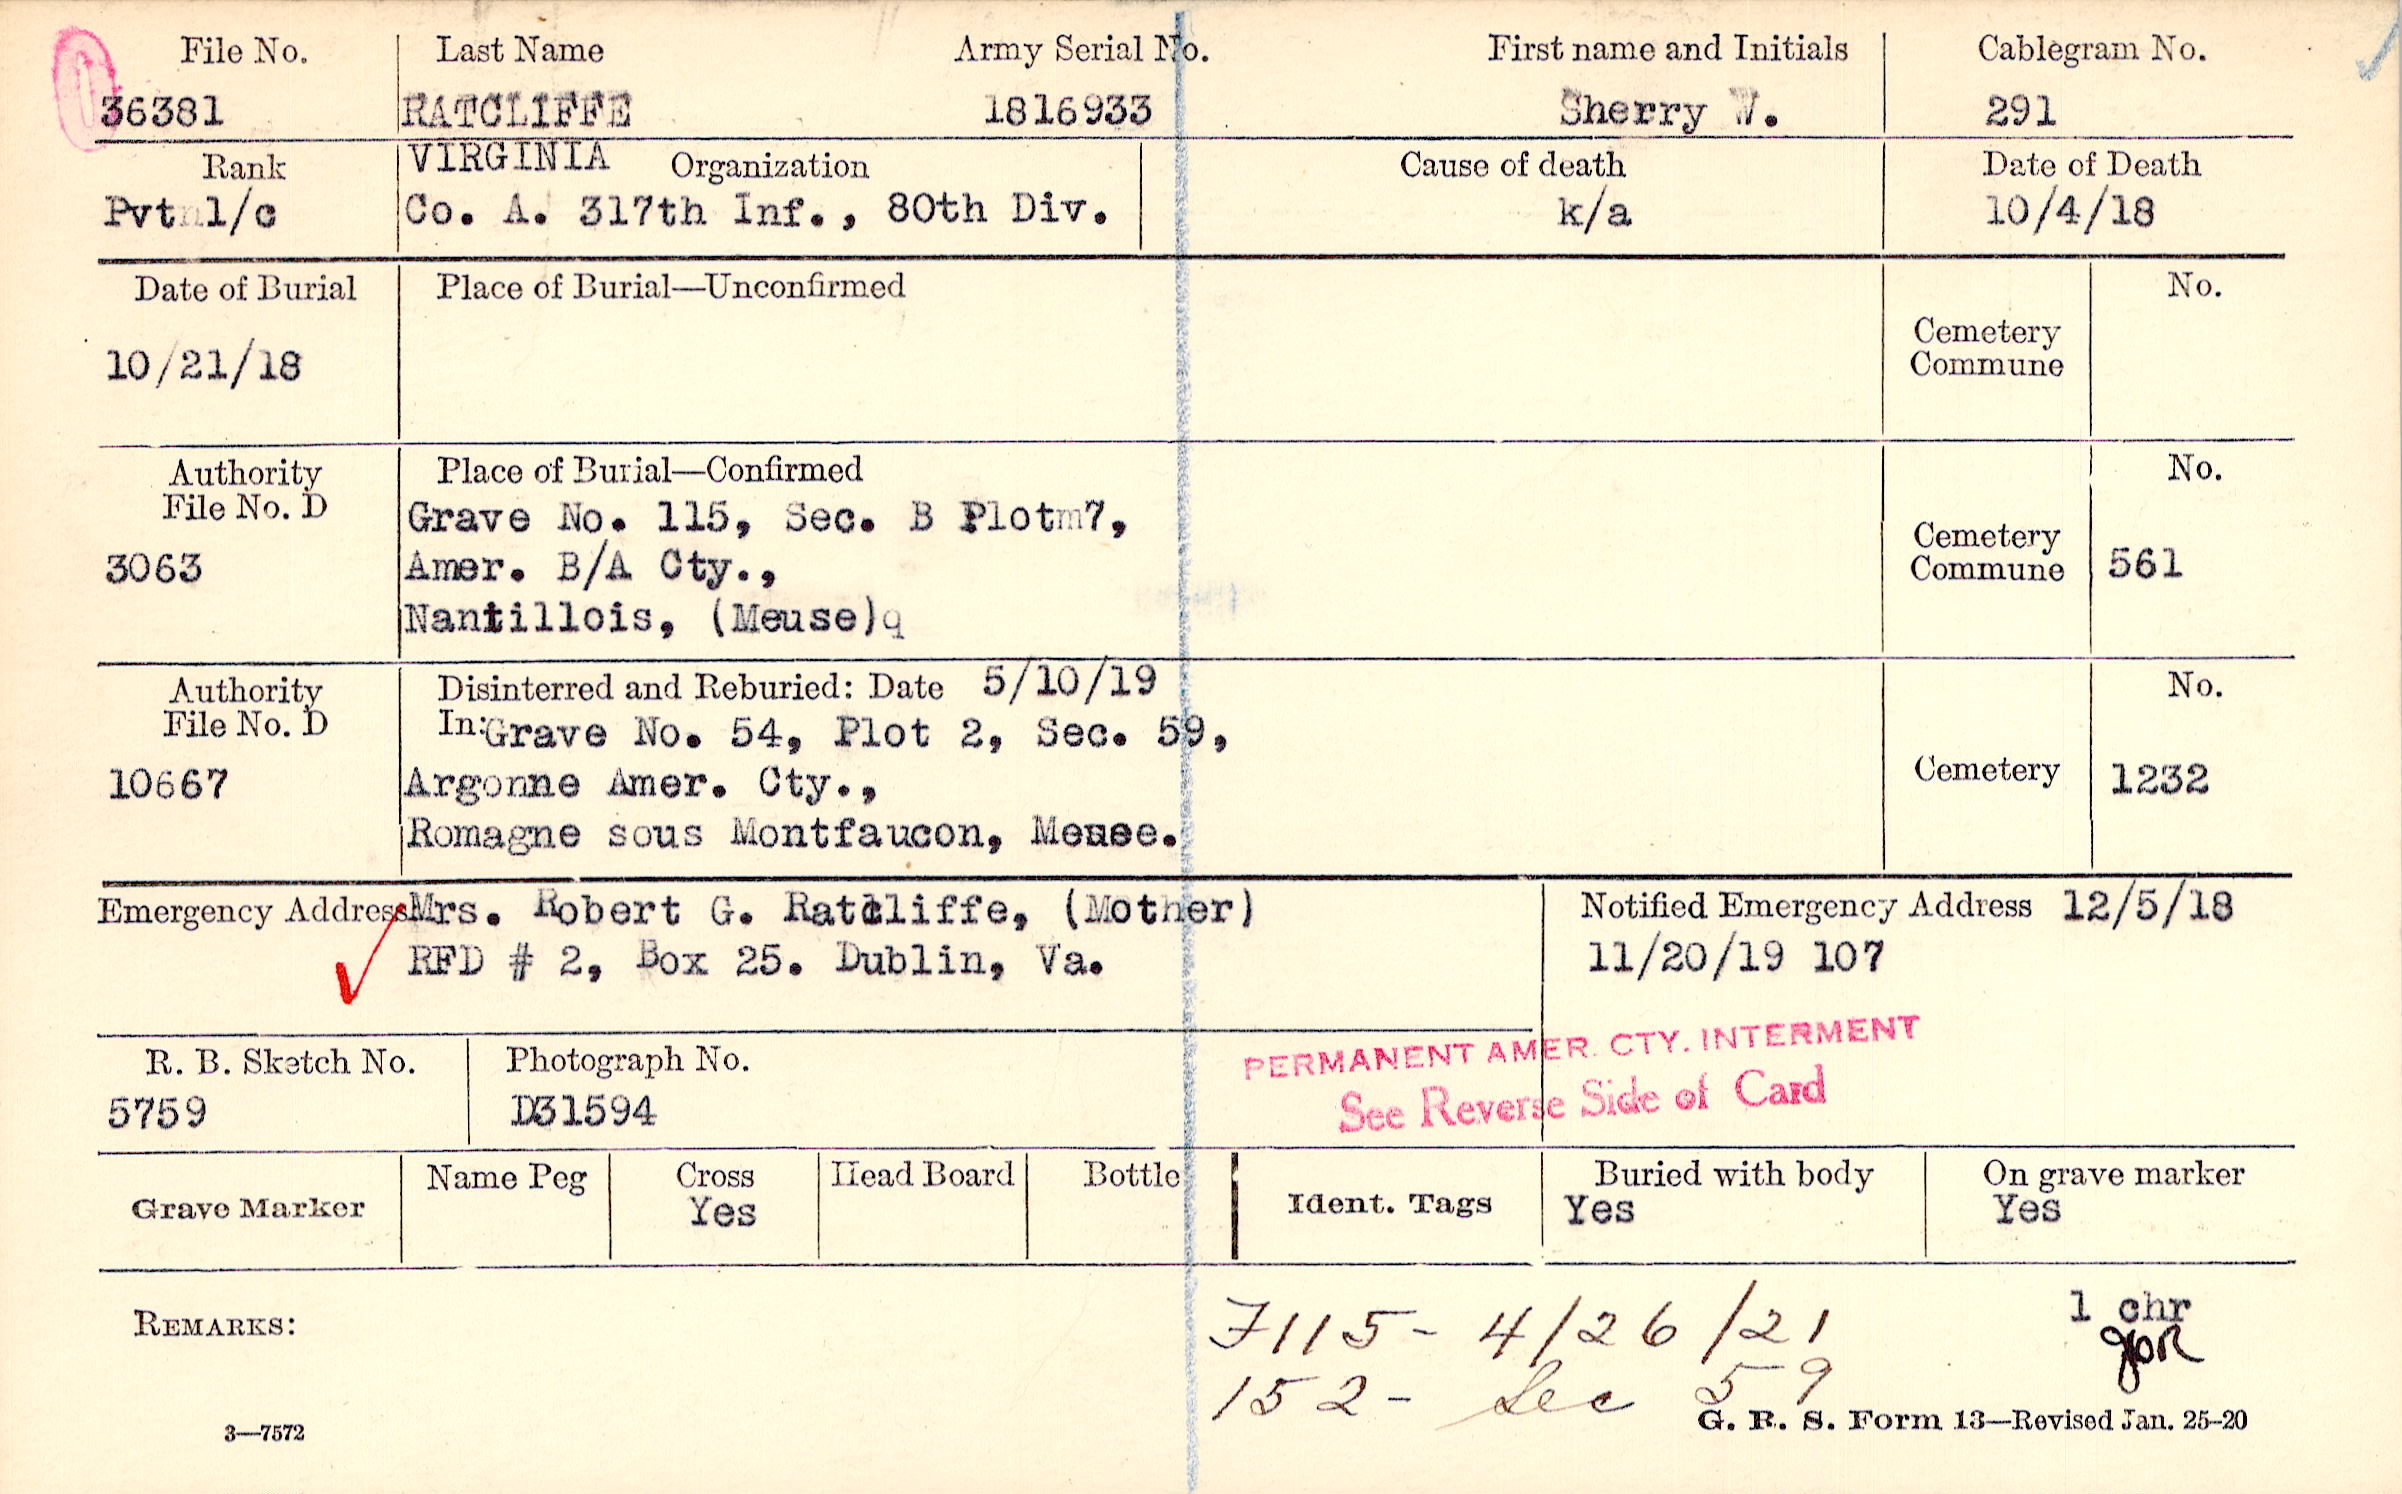 File No. Last Name Army Serial No. First name and Initials Cablegram No.
36381 RATCLIFFE 1816933 Sherry W. 291
Rank VIRGINIA Organization Cause of death Date of Death
Pvt 1/c Co. A. 317th Inf., 80th Div. k/a 10/4/18
Date of Burial Place of Burial—Unconfirmed No.
Cemetery
Commune
10/21/18
Authority Place of Burial—Confirmed No.
File No. D Grave No. 115, Sec. B Plotm7,
3063 Amer. B/A Cty., Cemetery
Commune 561
Nantillois, (Meuse)q
Authority Disinterred and Reburied: Date 5/10/19 No.
File No. D In: Grave No. 54, Plot 2, Sec. 59,
10667 Argonne Amer. Cty., Cemetery 1232
Romagne sous Montfaucon, Meuse.
Emergency Address Mrs. Robert G. Ratcliffe, (Mother) Notified Emergency Address 12/5/18
RFD # 2, Box 25. Dublin, Va. 11/20/19 107
PERMANENT AMER. CTY. INTERMENT
See Reverse Side of Card
R. B. Sketch No. Photograph No.
5759 D31594
Grave Marker Name Peg Cross Head Board Bottle Ident. Tags Buried with body On grave marker
Yes Yes Yes
REMARKS: 7115- 4/26/21 1 chr
152- Sec 59
3—7572 G. R. S. Form 13—Revised Jan. 25-20